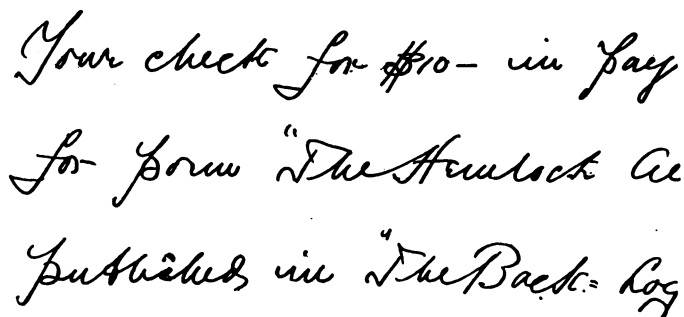 Your check for $10– in pay
for poem "The Hemlock
published in "The Back-Log